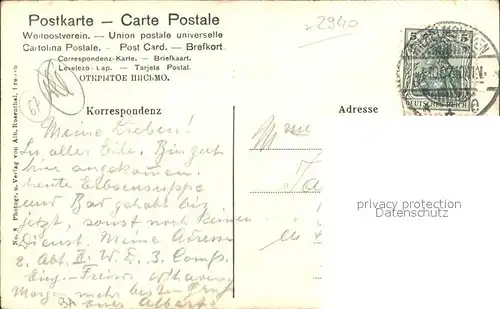 Postkarte — Carte Postale
Weltpostverein. — Union postale universelle
Cartolina Postale. - Post Card. — Brefkort.
Correspondenz-Karte. — Briefkaart.
Levelező-Lap. — Tarjeta Postal.
ОТКРЫТОЕ ПИСЬМО.
2940
5 5
DEUTSCHES REICH
Korrespondenz
Adresse
Meine Lieben!
In aller Eile. Bin gut
hier angekommen.
heute Erbsensuppe
und Bad gehabt bis
jetzt, sonst noch keinen
Dienst. Meine Adresse
2. Abt. II. W. E. 3. Comp.
Morgen mehr besten Gruß
Euer Albert
Mme
privacy protection
Datenschutz
No. 8 Photogr. u. Verlag von Alb. Rosenthal,